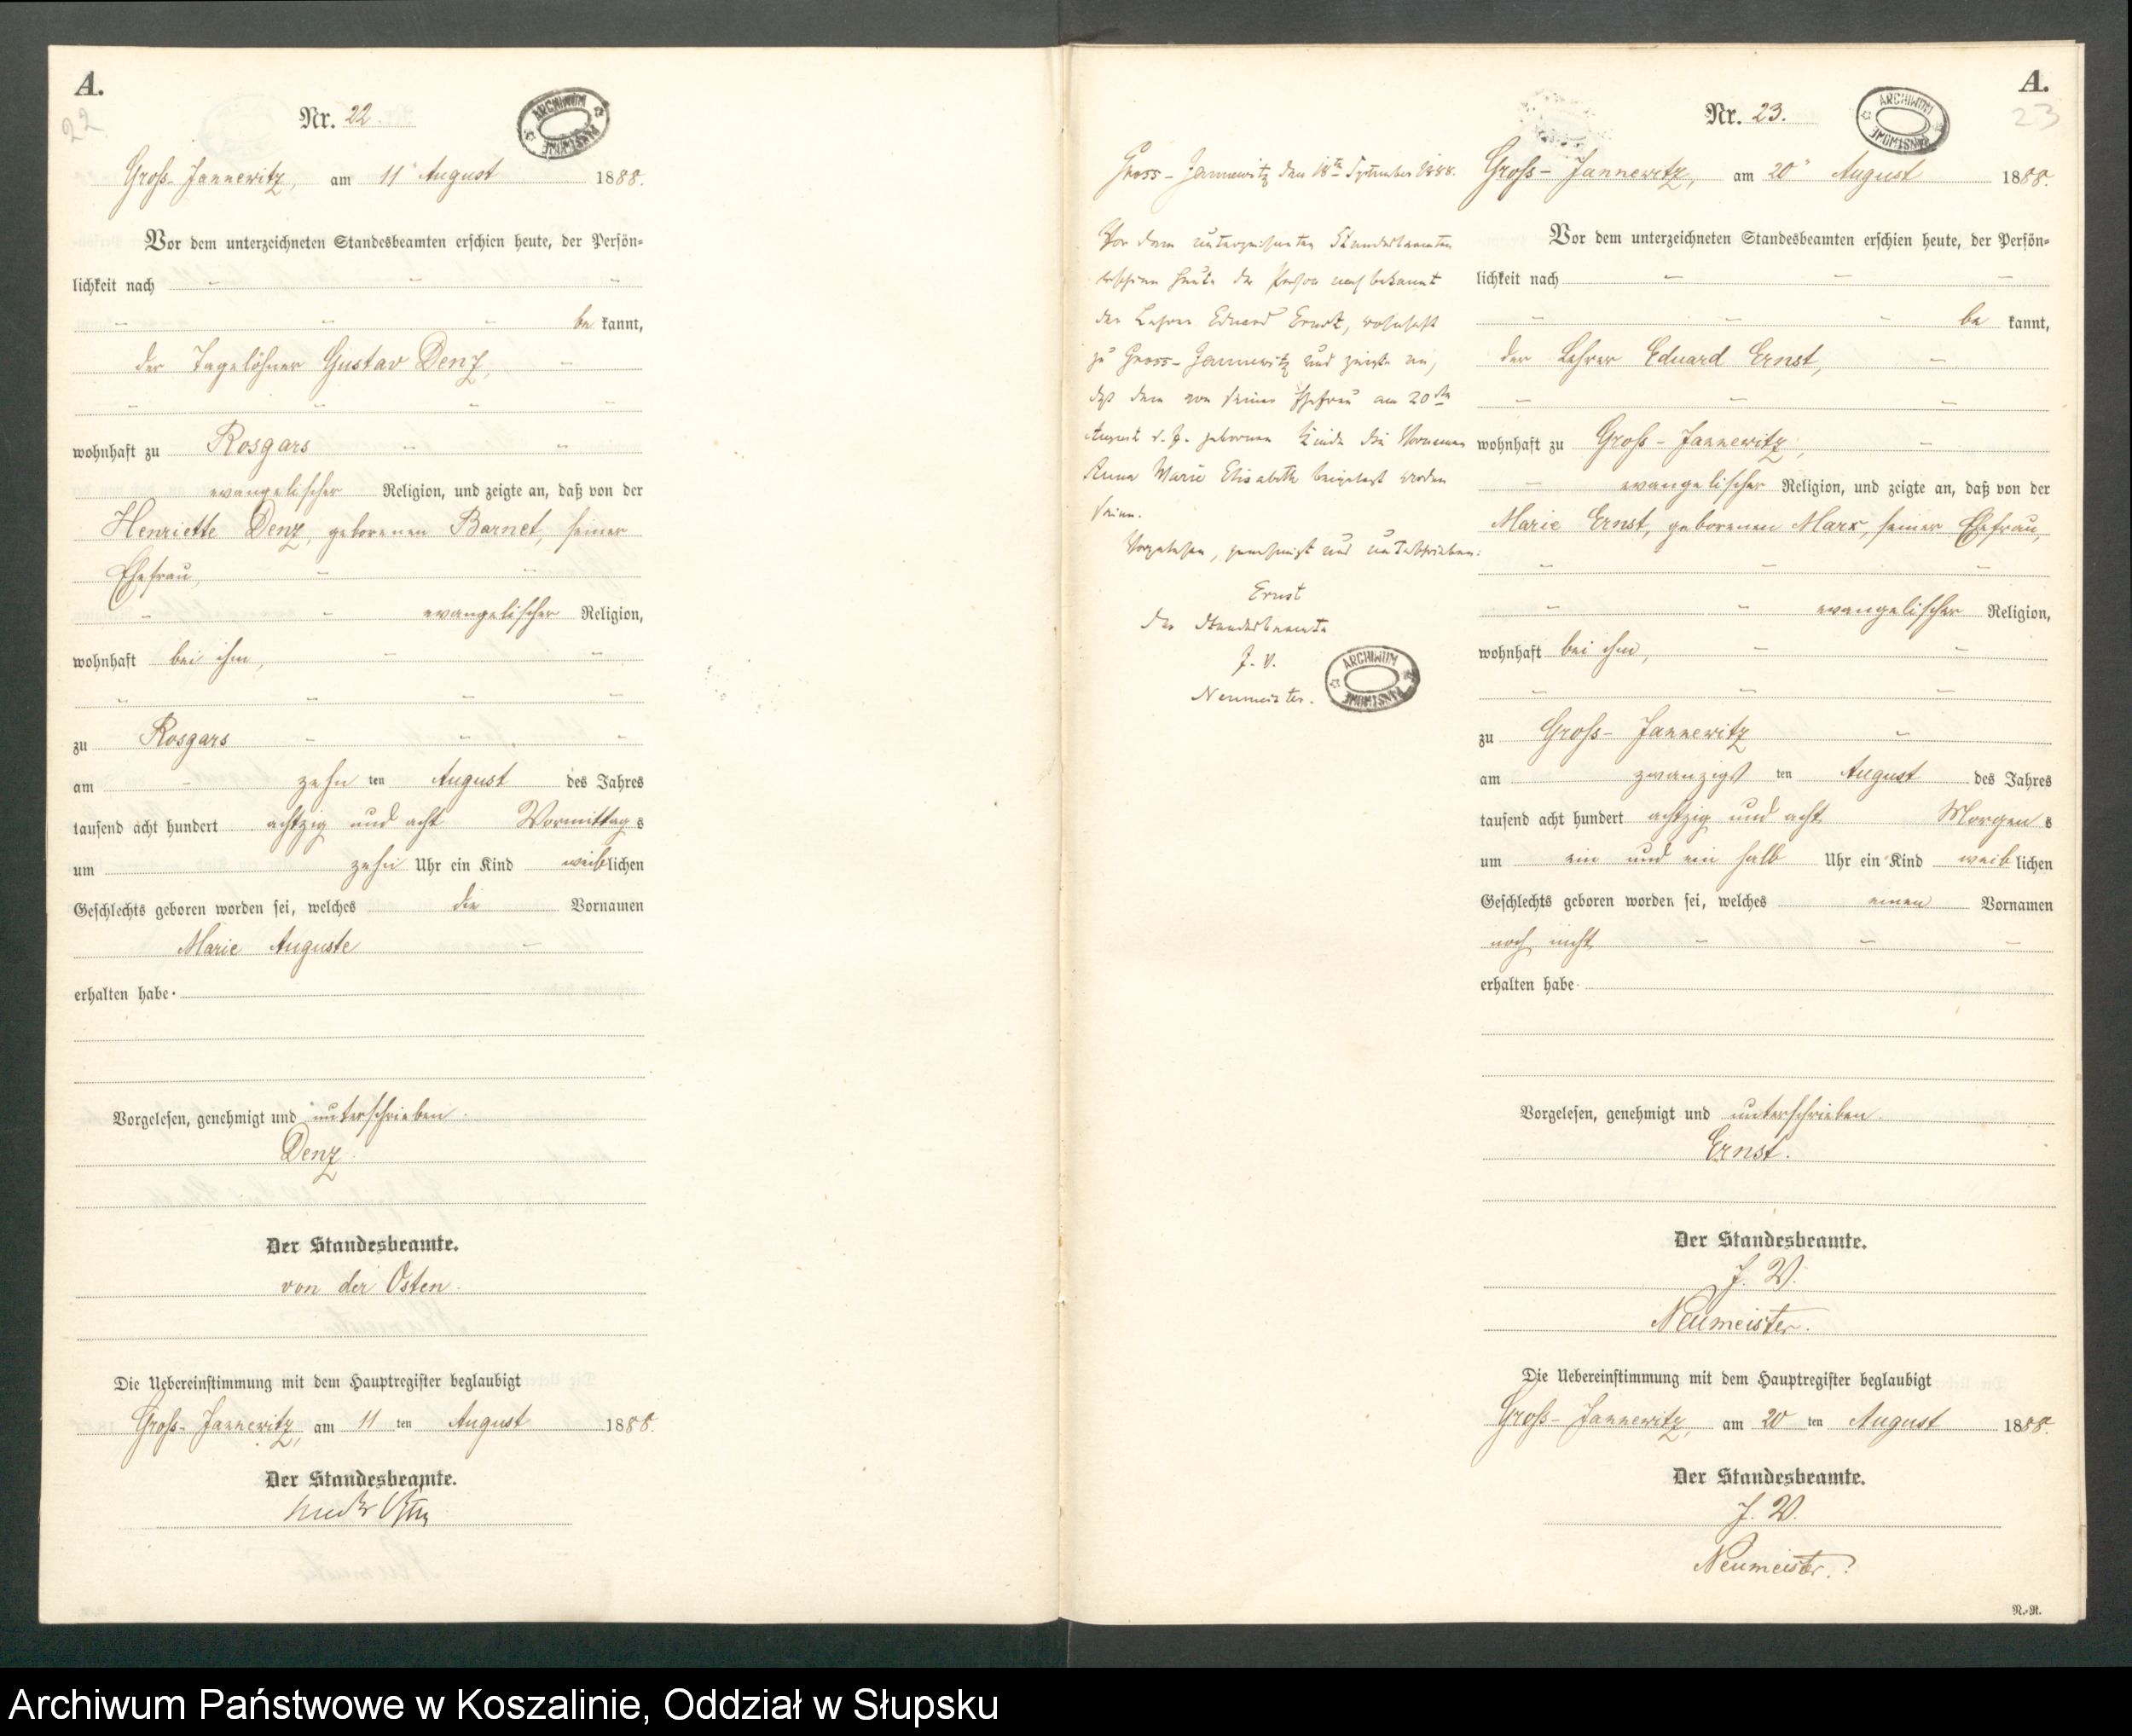 A.
22
Nr. 22.
ARCHIWUM PAŃSTWOWE
Groß-Jannewitz, am 11" August 1888.
Vor dem unterzeichneten Standesbeamten erschien heute, der Persön-
lichkeit nach
be kannt,
der Tagelöhner Gustav Denz,
wohnhaft zu Rosgars
evangelischer Religion, und zeigte an, daß von der
Henriette Denz, geborenen Barnet, seiner
Ehefrau,
evangelischer Religion,
wohnhaft bei ihm,
zu Rosgars
am zehn ten August des Jahres
tausend acht hundert achtzig und acht Vormittag s
um zehn Uhr ein Kind weiblichen
Geschlechts geboren worden sei, welches die Vornamen
Marie Auguste
erhalten habe.
Vorgelesen, genehmigt und unterschrieben.
Denz.
Der Standesbeamte.
von der Osten.
Die Uebereinstimmung mit dem Hauptregister beglaubigt
Groß-Jannewitz, am 11 ten August 1888.
Der Standesbeamte.
von der Osten
A.
23
Nr. 23.
ARCHIWUM PAŃSTWOWE
Gross-Jannewitz den 18ten September 1888.
Vor dem unterzeichneten Standesbeamten
erschien heute der Person nach bekannt
der Lehrer Eduard Ernst, wohnhaft
zu Gross-Jannewitz und zeigte an,
daß dem von seiner Ehefrau am 20ten
August d. J. geborenen Kinde die Vornamen
Anna Marie Elisabeth beigelegt worden
seien.
Vorgelesen, genehmigt und unterschrieben:
Ernst
Der Standesbeamte
J. V.
Neumeister.
ARCHIWUM PAŃSTWOWE
Groß-Jannewitz, am 20" August 1888.
Vor dem unterzeichneten Standesbeamten erschien heute, der Persön-
lichkeit nach
be kannt,
der Lehrer Eduard Ernst,
wohnhaft zu Groß-Jannewitz,
evangelischer Religion, und zeigte an, daß von der
Marie Ernst, geborenen Marx, seiner Ehefrau,
evangelischer Religion,
wohnhaft bei ihm,
zu Groß-Jannewitz
am zwanzigs ten August des Jahres
tausend acht hundert achtzig und acht Morgen s
um ein und ein halb Uhr ein Kind weib lichen
Geschlechts geboren worden sei, welches einen Vornamen
noch nicht
erhalten habe.
Vorgelesen, genehmigt und unterschrieben.
Ernst.
Der Standesbeamte.
J. V.
Neumeister.
Die Uebereinstimmung mit dem Hauptregister beglaubigt
Groß-Jannewitz, am 20 ten August 1888.
Der Standesbeamte.
J. V.
Neumeister.
N.-N.
Archiwum Państwowe w Koszalinie, Oddział w Słupsku